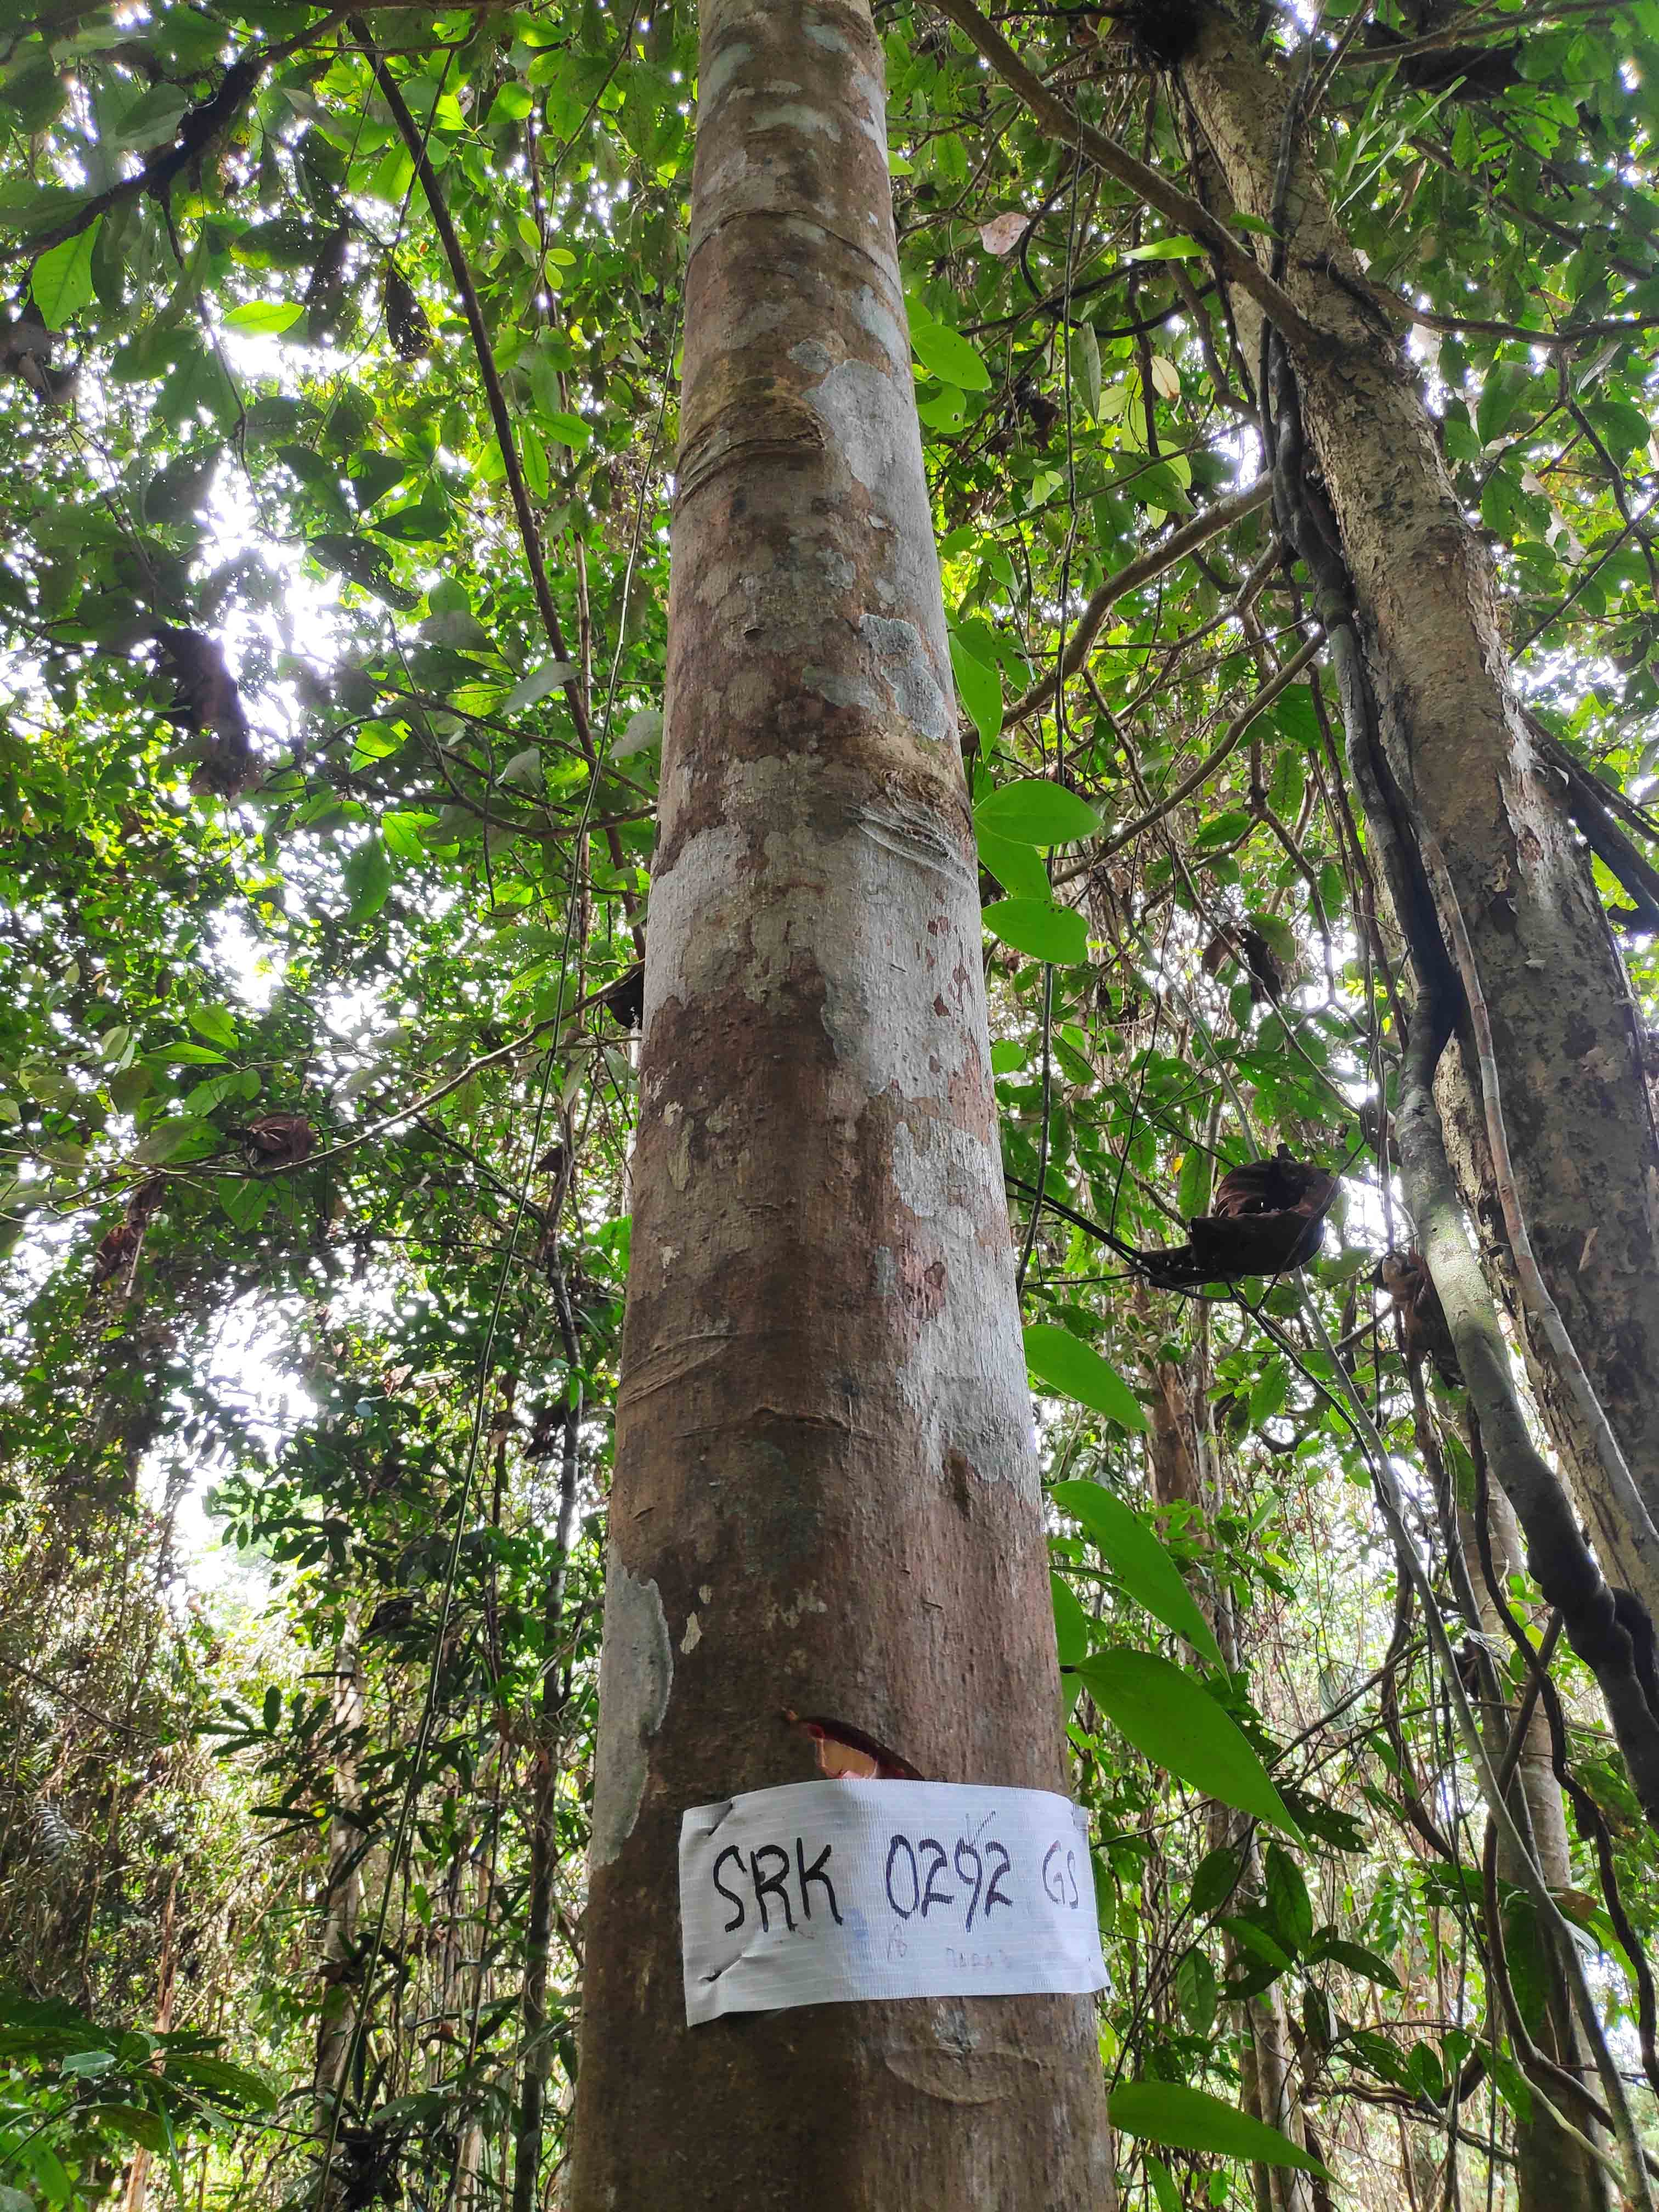 SRK 0292 GS